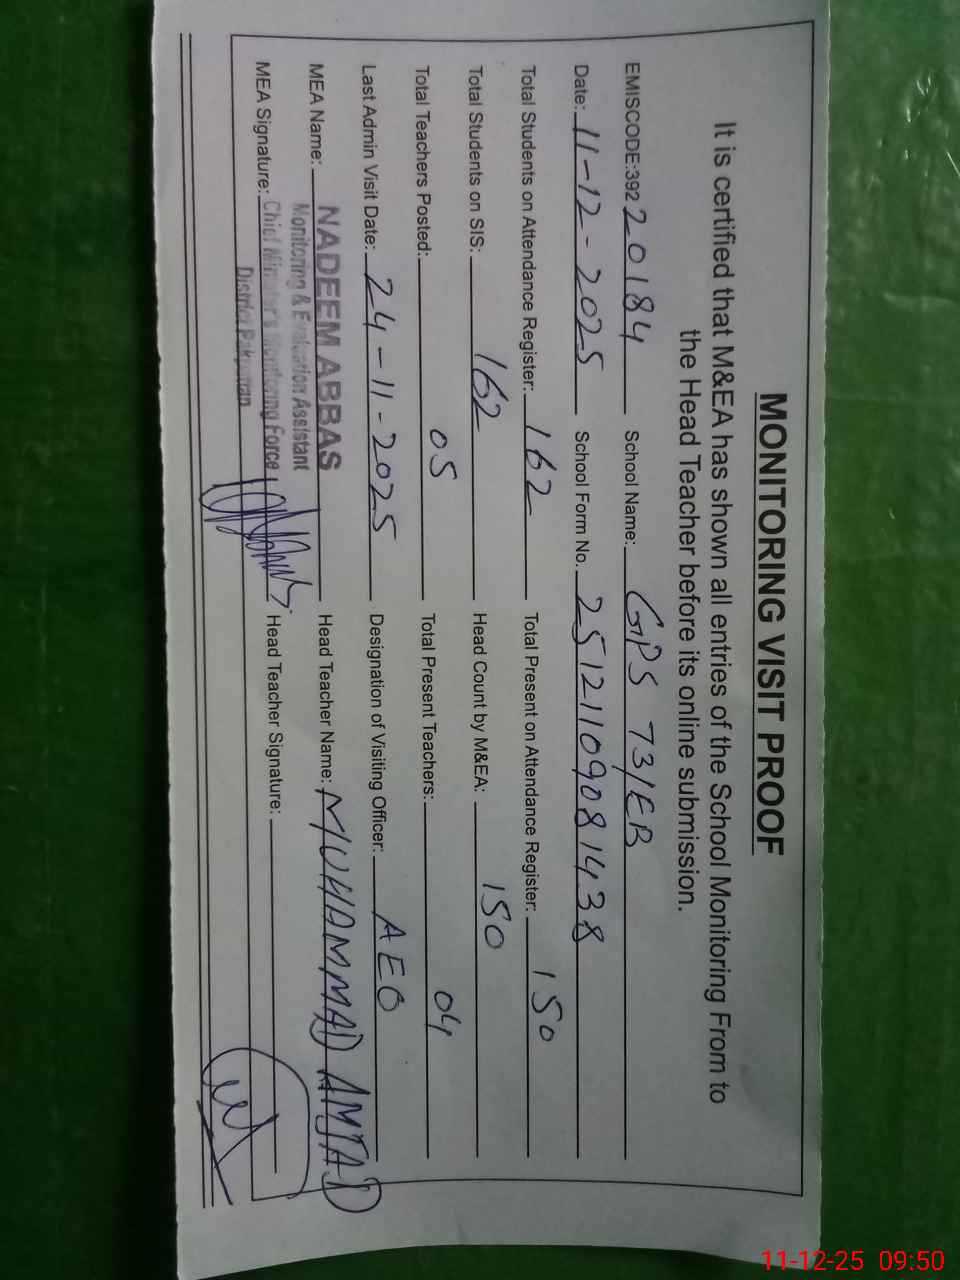 MONITORING VISIT PROOF
It is certified that M&EA has shown all entries of the School Monitoring From to
the Head Teacher before its online submission.
EMISCODE:392 20184 School Name: GPS 73/EB
Date: 11-12-2025 School Form No. 25121109081438
Total Students on Attendance Register: 162 Total Present on Attendance Register: 150
Total Students on SIS: 162 Head Count by M&EA: 150
Total Teachers Posted: 05 Total Present Teachers: 04
Last Admin Visit Date: 24-11-2025 Designation of Visiting Officer: AEO
MEA Name: NADEEM ABBAS Head Teacher Name: MUHAMMAD AMJAD
Monitoring & Evaluation Assistant
MEA Signature: Chief Minister's Monitoring Force Head Teacher Signature:
District Pakpattan
11-12-25 09:50